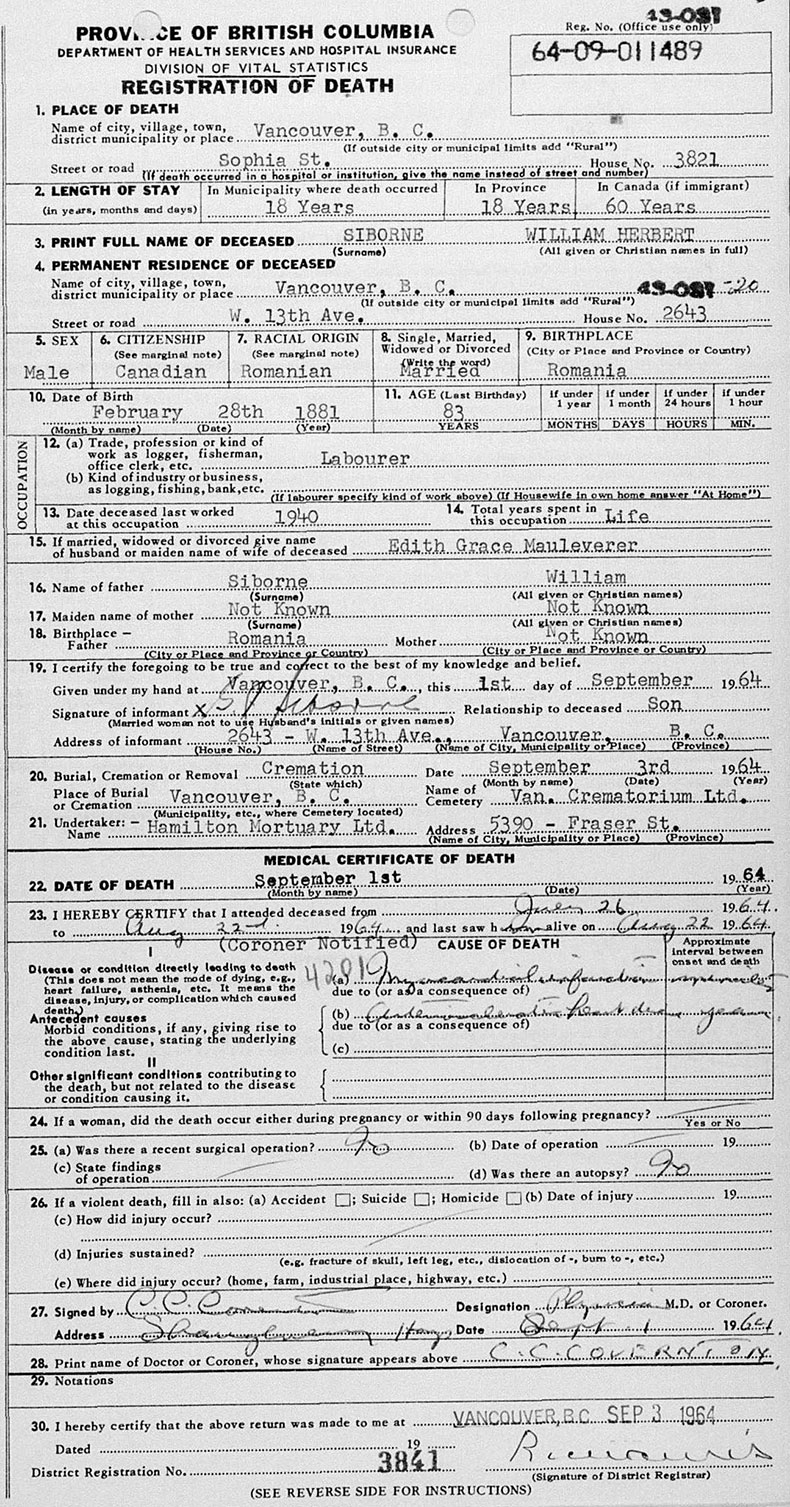 43-087
PROVINCE OF BRITISH COLUMBIA
Reg. No. (Office use only)
DEPARTMENT OF HEALTH SERVICES AND HOSPITAL INSURANCE
64-09-011489
DIVISION OF VITAL STATISTICS
REGISTRATION OF DEATH
1. PLACE OF DEATH
Name of city, village, town, district municipality or place Vancouver, B. C.
(If outside city or municipal limits add "Rural")
Street or road Sophia St. House No. 3821
(If death occurred in a hospital or institution, give the name instead of street and number)
2. LENGTH OF STAY In Municipality where death occurred In Province In Canada (if immigrant)
(in years, months and days) 18 Years 18 Years 60 Years
3. PRINT FULL NAME OF DECEASED SIBORNE WILLIAM HERBERT
(Surname) (All given or Christian names in full)
4. PERMANENT RESIDENCE OF DECEASED
Name of city, village, town, district municipality or place Vancouver, B. C. 43-087-20
(If outside city or municipal limits add "Rural")
Street or road W. 13th Ave. House No. 2643
5. SEX 6. CITIZENSHIP 7. RACIAL ORIGIN 8. Single, Married, Widowed or Divorced 9. BIRTHPLACE
(See marginal note) (See marginal note) (Write the word) (City or Place and Province or Country)
Male Canadian Romanian Married Romania
10. Date of Birth 11. AGE (Last Birthday) if under 1 year if under 1 month if under 24 hours if under 1 hour
February 28th 1881 83
(Month by name) (Date) (Year) YEARS MONTHS DAYS HOURS MIN.
OCCUPATION
12. (a) Trade, profession or kind of work as logger, fisherman, office clerk, etc. Labourer
(b) Kind of industry or business, as logging, fishing, bank, etc.
(If labourer specify kind of work above) (If Housewife in own home answer "At Home")
13. Date deceased last worked at this occupation 1940 14. Total years spent in this occupation Life
15. If married, widowed or divorced give name of husband or maiden name of wife of deceased Edith Grace Mauleverer
16. Name of father Siborne William
(Surname) (All given or Christian names)
17. Maiden name of mother Not Known Not Known
(Surname) (All given or Christian names)
18. Birthplace – Father Romania Mother Not Known
(City or Place and Province or Country) (City or Place and Province or Country)
19. I certify the foregoing to be true and correct to the best of my knowledge and belief.
Given under my hand at Vancouver, B. C., this 1st day of September 1964
Signature of informant x Siborne Relationship to deceased Son
(Married woman not to use Husband's initials or given names)
Address of informant 2643 - W. 13th Ave., Vancouver, B. C.
(House No.) (Name of Street) (Name of City, Municipality or Place) (Province)
20. Burial, Cremation or Removal Cremation Date September 3rd 1964
(State which) (Month by name) (Date) (Year)
Place of Burial or Cremation Vancouver, B. C. Name of Cemetery Van. Crematorium Ltd.
(Municipality, etc., where Cemetery located)
21. Undertaker: – Name Hamilton Mortuary Ltd. Address 5390 - Fraser St.
(Name of City, Municipality or Place) (Province)
MEDICAL CERTIFICATE OF DEATH
22. DATE OF DEATH September 1st 1964
(Month by name) (Date) (Year)
23. I HEREBY CERTIFY that I attended deceased from 26 1964
to Aug 22nd 1964 and last saw him alive on Aug 22 1964
(Coroner Notified) CAUSE OF DEATH Approximate interval between onset and death
I
Disease or condition directly leading to death
(This does not mean the mode of dying, e.g., heart failure, asthenia, etc. It means the disease, injury, or complication which caused death.)
4201 (a) Myocardial infarction
due to (or as a consequence of)
Antecedent causes
Morbid conditions, if any, giving rise to the above cause, stating the underlying condition last.
(b) heart
due to (or as a consequence of)
(c)
II
Other significant conditions contributing to the death, but not related to the disease or condition causing it.
24. If a woman, did the death occur either during pregnancy or within 90 days following pregnancy?
Yes or No
25. (a) Was there a recent surgical operation? No (b) Date of operation 19
(c) State findings of operation (d) Was there an autopsy? No
26. If a violent death, fill in also: (a) Accident ; Suicide ; Homicide (b) Date of injury 19
(c) How did injury occur?
(d) Injuries sustained?
(e.g. fracture of skull, left leg, etc., dislocation of -, burn to -, etc.)
(e) Where did injury occur? (home, farm, industrial place, highway, etc.)
27. Signed by C. C. Designation Physician M.D. or Coroner.
Address Date Sept 1 1964
28. Print name of Doctor or Coroner, whose signature appears above C. C. COVERNTON
29. Notations
30. I hereby certify that the above return was made to me at VANCOUVER, B.C. SEP 3 1964
Dated 19
District Registration No. 3841
(Signature of District Registrar)
(SEE REVERSE SIDE FOR INSTRUCTIONS)